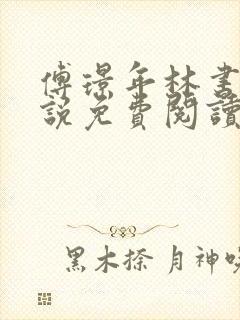 傅璟年林書
說免費閱讀
黑木捺 月神